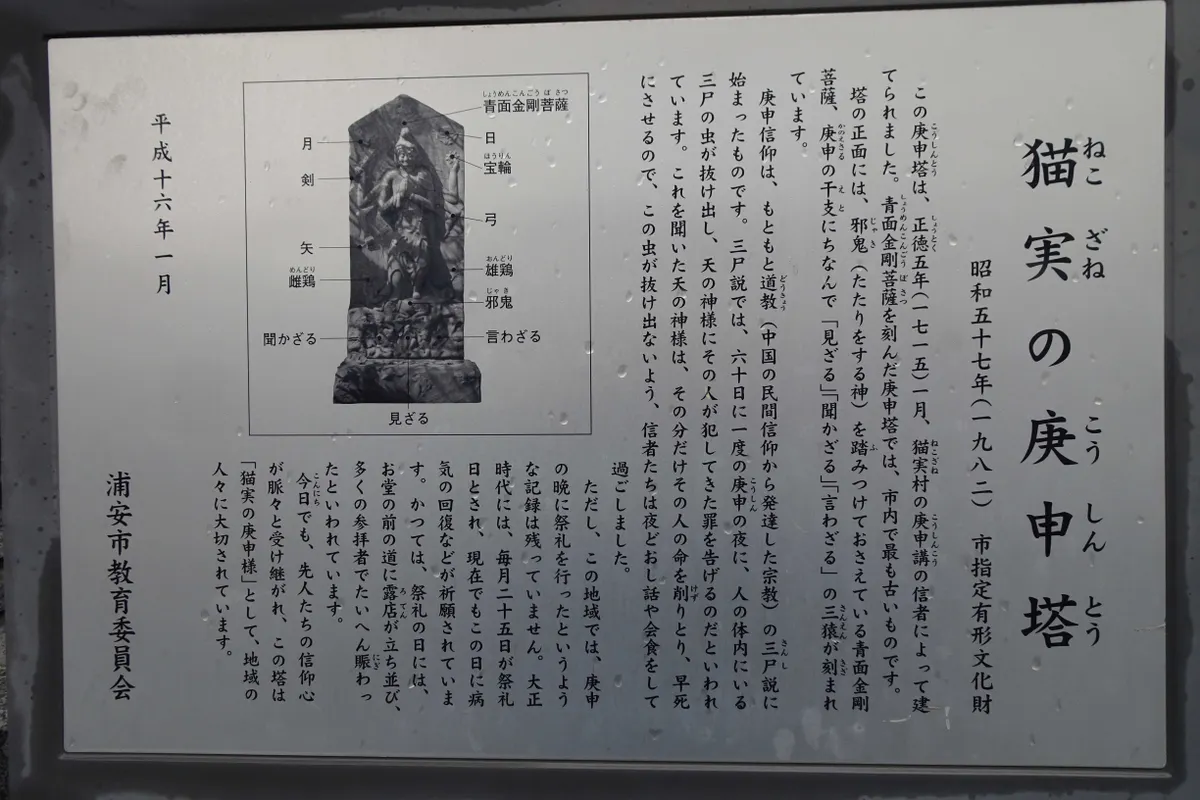 猫実の庚申塔
ねこざねこうしんとう
昭和五十七年(一九八二) 市指定有形文化財
この庚申塔は、正徳五年(一七一五)一月、猫実村の庚申講の信者によって建
てられました。青面金剛菩薩を刻んだ庚申塔では、市内で最も古いものです。
塔の正面には、邪鬼(たたりをする神)を踏みつけておさえている青面金剛
菩薩、庚申の干支にちなんで「見ざる」「聞かざる」「言わざる」の三猿が刻まれ
ています。
庚申信仰は、もともと道教(中国の民間信仰から発達した宗教)の三尸説に
始まったものです。三尸説では、六十日に一度の庚申の夜に、人の体内にいる
三尸の虫が抜け出し、天の神様にその人が犯してきた罪を告げるのだといわれ
ています。これを聞いた天の神様は、その分だけその人の命を削りとり、早死
にさせるので、この虫が抜け出ないよう、信者たちは夜どおし話や会食をして
過ごしました。
ただし、この地域では、庚申
の晩に祭礼を行ったというよう
な記録は残っていません。大正
時代には、毎月二十五日が祭礼
日とされ、現在でもこの日に病
気の回復などが祈願されていま
す。かつては、祭礼の日には、
お堂の前の道に露店が立ち並び、
多くの参拝者でたいへん賑わっ
たといわれています。
今日でも、先人たちの信仰心
が脈々と受け継がれ、この塔は
「猫実の庚申様」として、地域の
人々に大切されています。
青面金剛菩薩
しょうめんこんごうぼさつ
日
宝輪
ほうりん
弓
雄鶏
おんどり
邪鬼
じゃき
言わざる
月
剣
矢
雌鶏
めんどり
聞かざる
見ざる
平成十六年一月
浦安市教育委員会